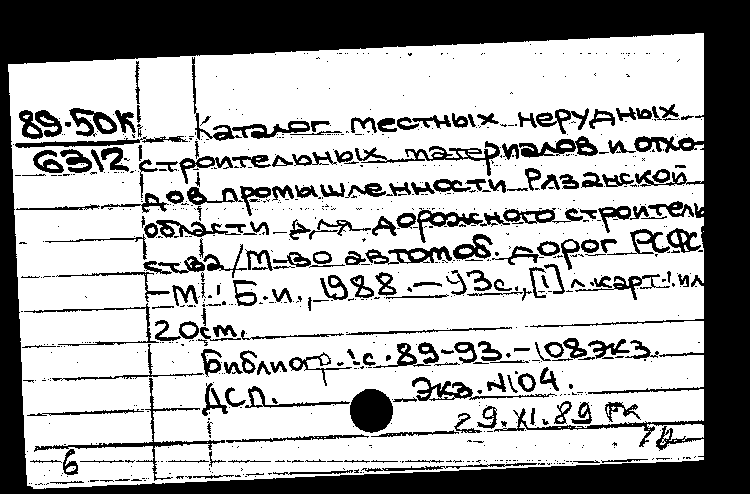 89-50К Каталог местных нерудных
6312 строительных материалов и отхо-
дов промышленности Рязанской
области для дорожного строитель
ства / М-во автомоб. дорог РСФС
-М.: Б.и., 1988.-93с., [1] л.карт.:ил
20см.
Библиогр.:с.89-93.-108экз.
ДСП. Экз.N104.
29.XI.89
6